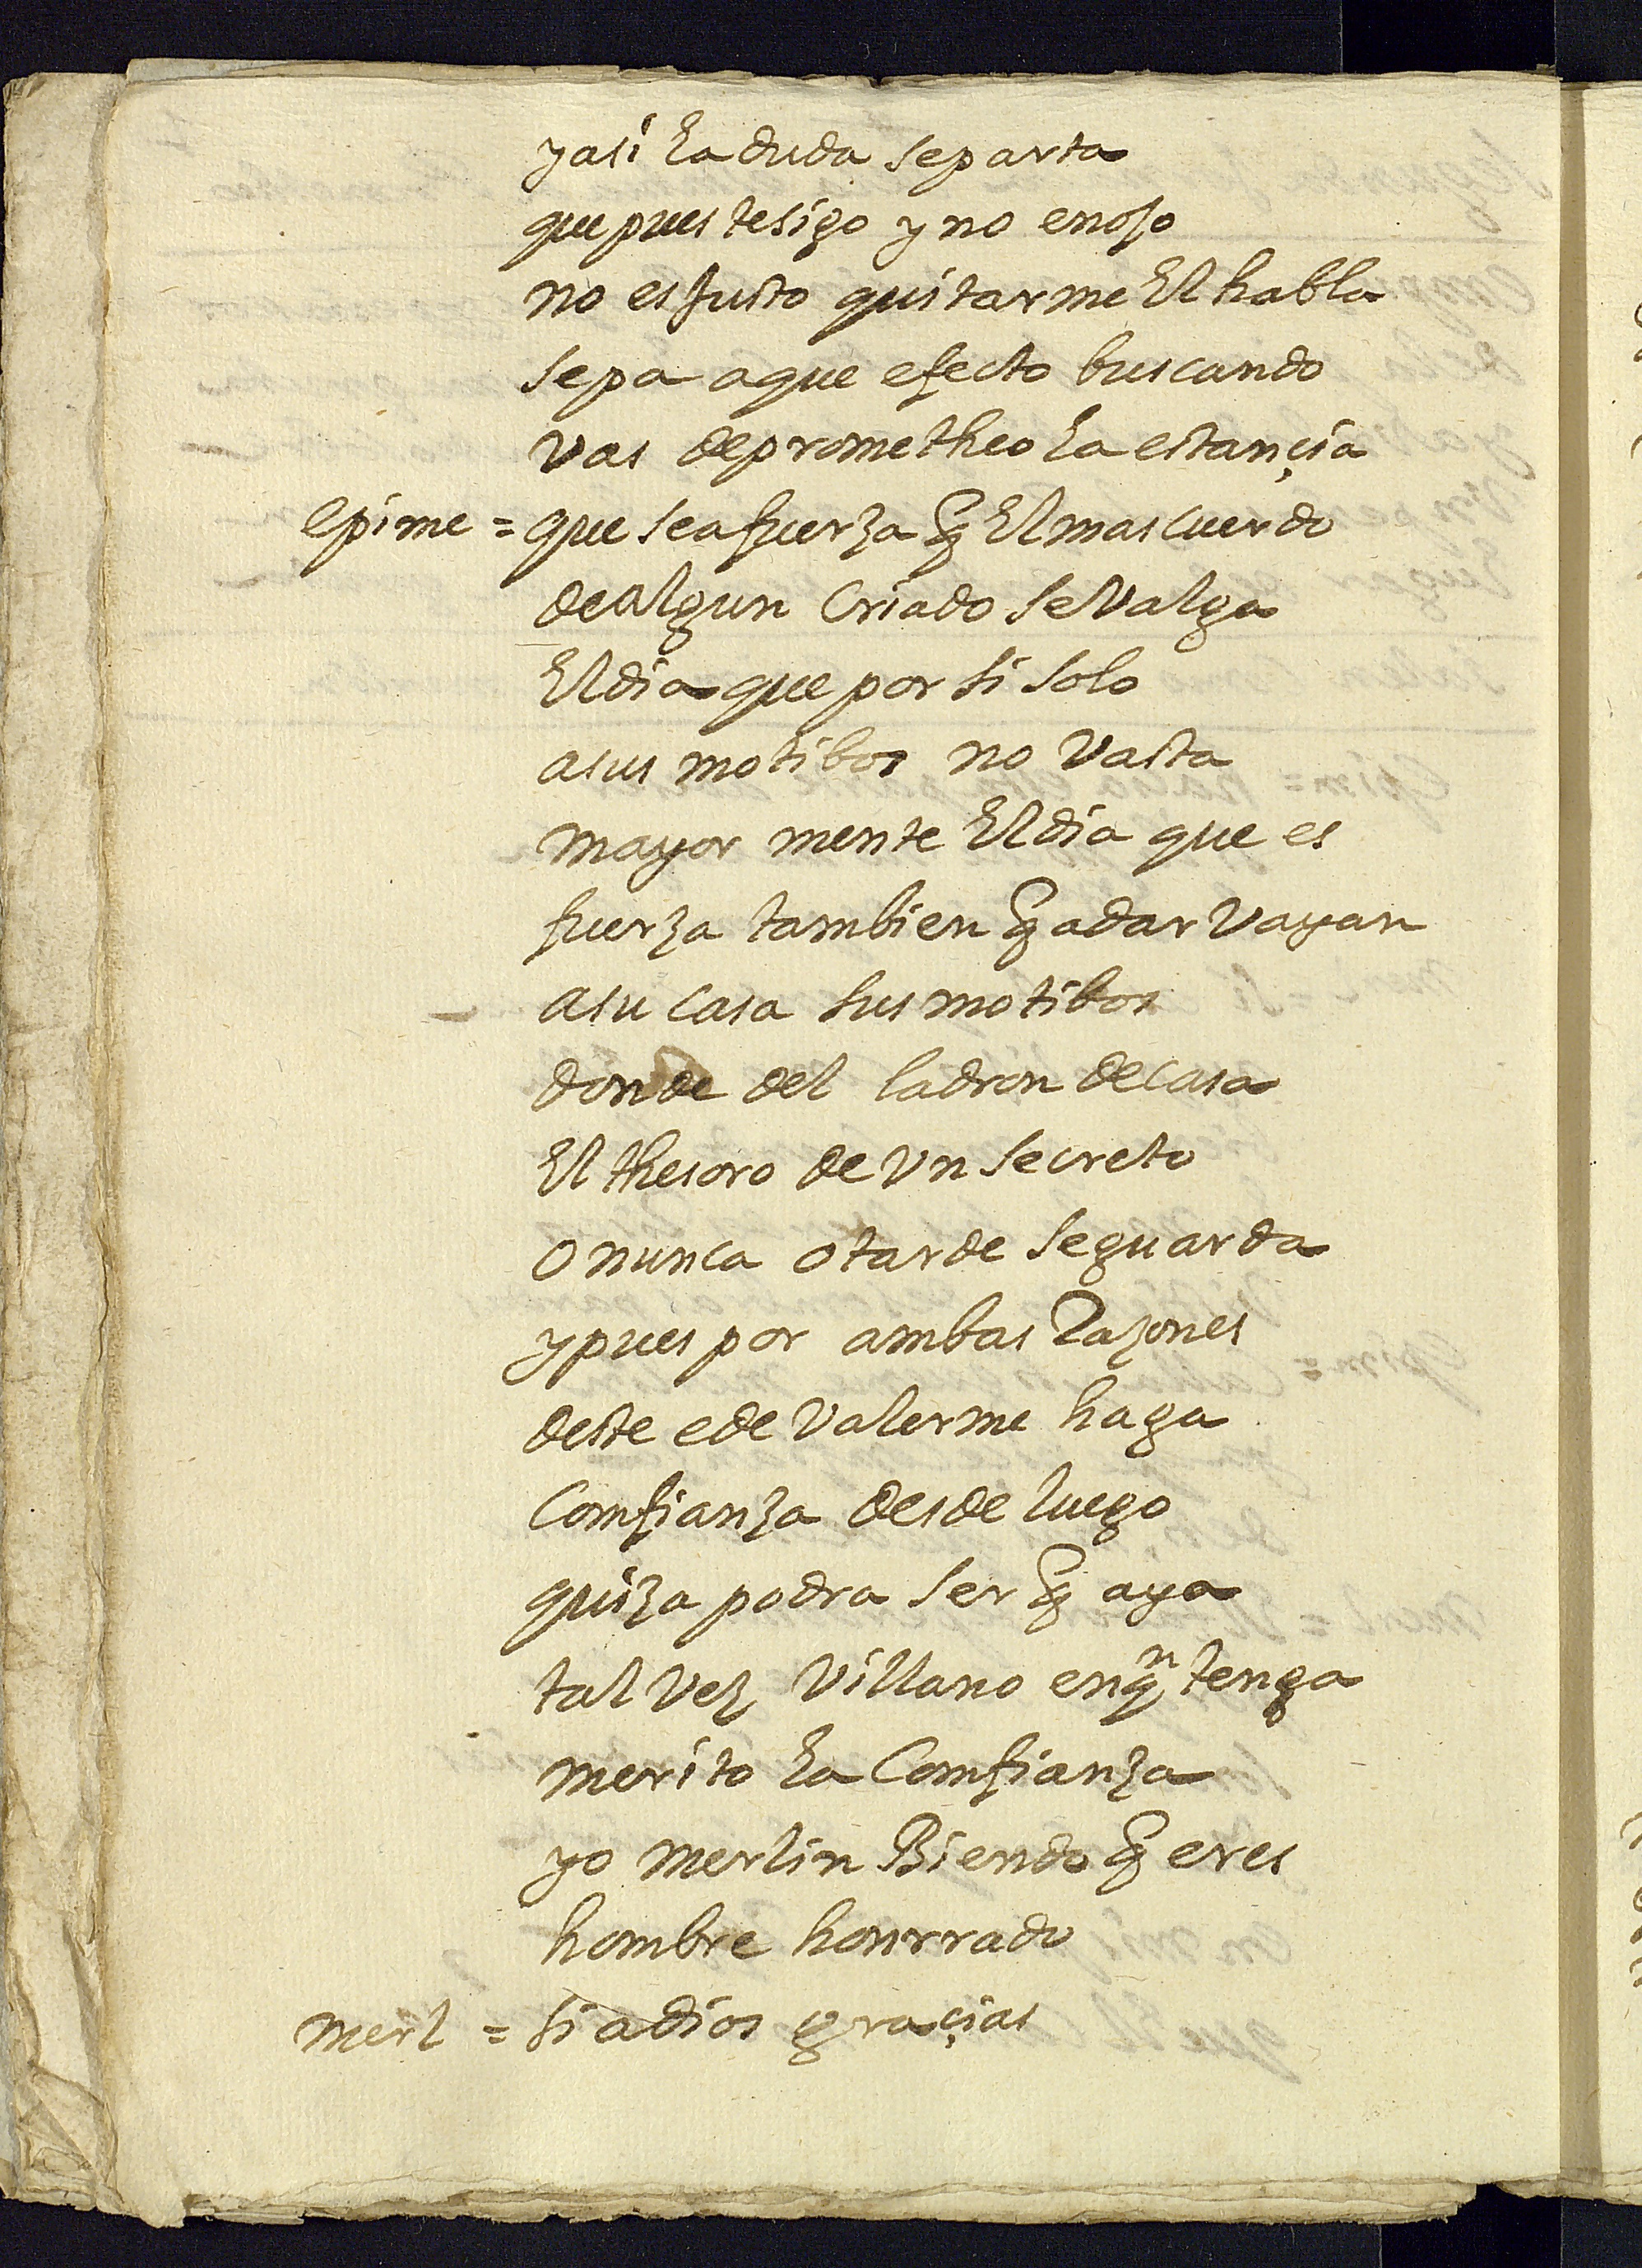 y asi la duda se parta
que pues te sigo y no enojo
no es justo quitarme El habla
sepa a que efecto buscando
vas de prometheo la estançia
epime = que sea fuerza q̃ El mas cuerdo
de Algun Criado se Valga
El dia que por si solo
a sus motibos no Vasta
mayor mente El dia que es
fuerza tambien q̃ a dar Vayan
a su casa sus motibos
donde del ladron de casa
El thesoro de Vn secreto
O nunca o tarde se guarda
y pues por ambas Razones
deste e de Valerme haga
Comfianza desde luego
quiza podra ser q̃ aya
tal Vez Villano en qⁿ tenga
merito la Comfianza
yo merlin Biendo q̃ eres
hombre honrrado
merl = si a dios graçias